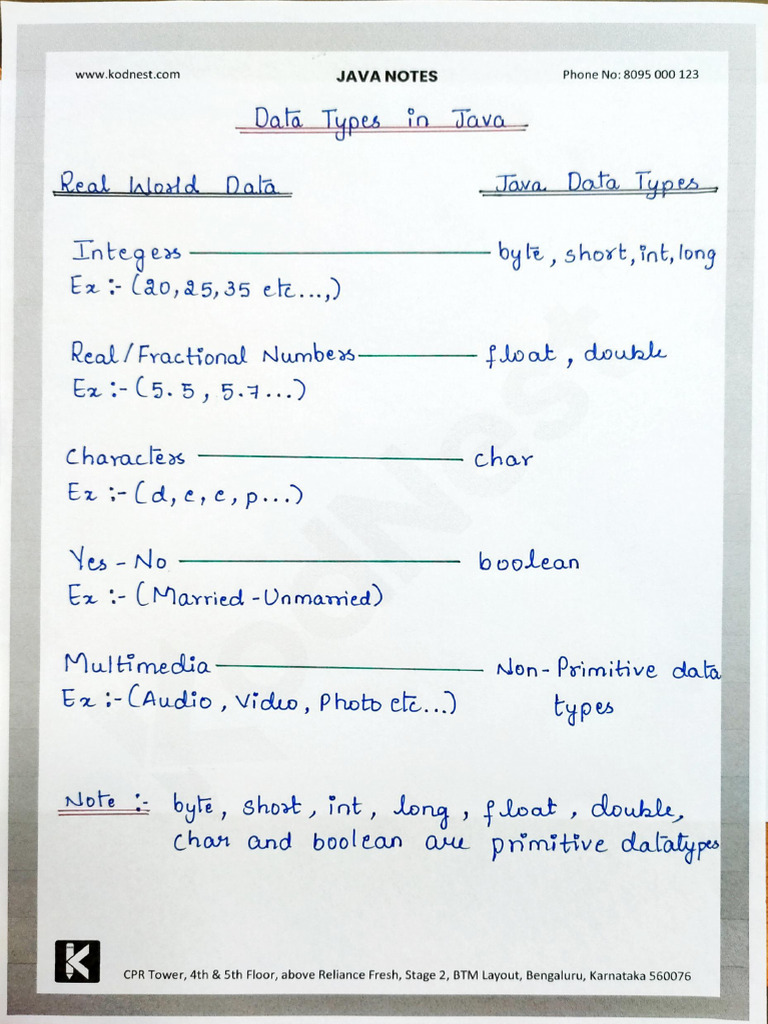 www.kodnest.com JAVA NOTES Phone No: 8095 000 123
Data Types in Java
Real World Data Java Data Types
Integers byte, short, int, long
Ex :- (20, 25, 35 etc...,)
Real/Fractional Numbers float, double
Ex :- (5.5, 5.7...)
Characters char
Ex :- (d, c, e, p...)
Yes - No boolean
Ex :- (Married - Unmarried)
Multimedia Non-Primitive data
Ex :- (Audio, Video, Photo etc...) types
Note :- byte, short, int, long, float, double,
char and boolean are primitive datatypes
KodNest
K
CPR Tower, 4th & 5th Floor, above Reliance Fresh, Stage 2, BTM Layout, Bengaluru, Karnataka 560076